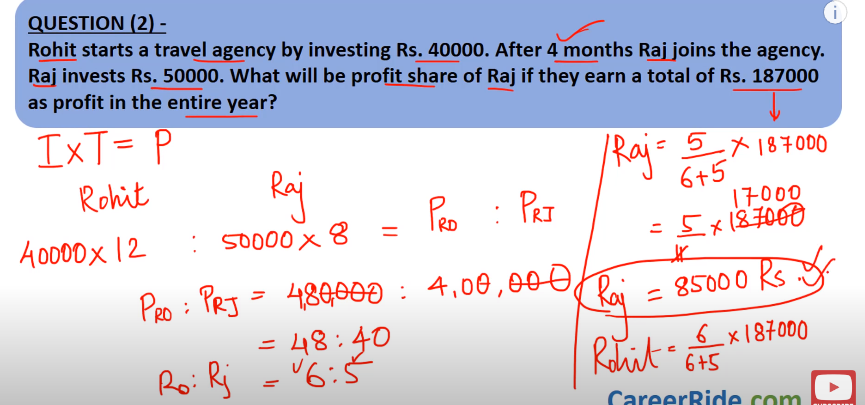 QUESTION (2) -
Rohit starts a travel agency by investing Rs. 40000. After 4 months Raj joins the agency.
Raj invests Rs. 50000. What will be profit share of Raj if they earn a total of Rs. 187000
as profit in the entire year?
I x T = P
Rohit Raj
40000 x 12 : 50000 x 8 = PRO : PRJ
PRO : PRJ = 480,000 : 4,00,000
= 48 : 40
Ro : Rj = 6 : 5
Raj = 5/6+5 x 187000
17000
= 5/11 x 187000
Raj = 85000 Rs.
Rohit = 6/6+5 x 187000
CareerRide.com
i